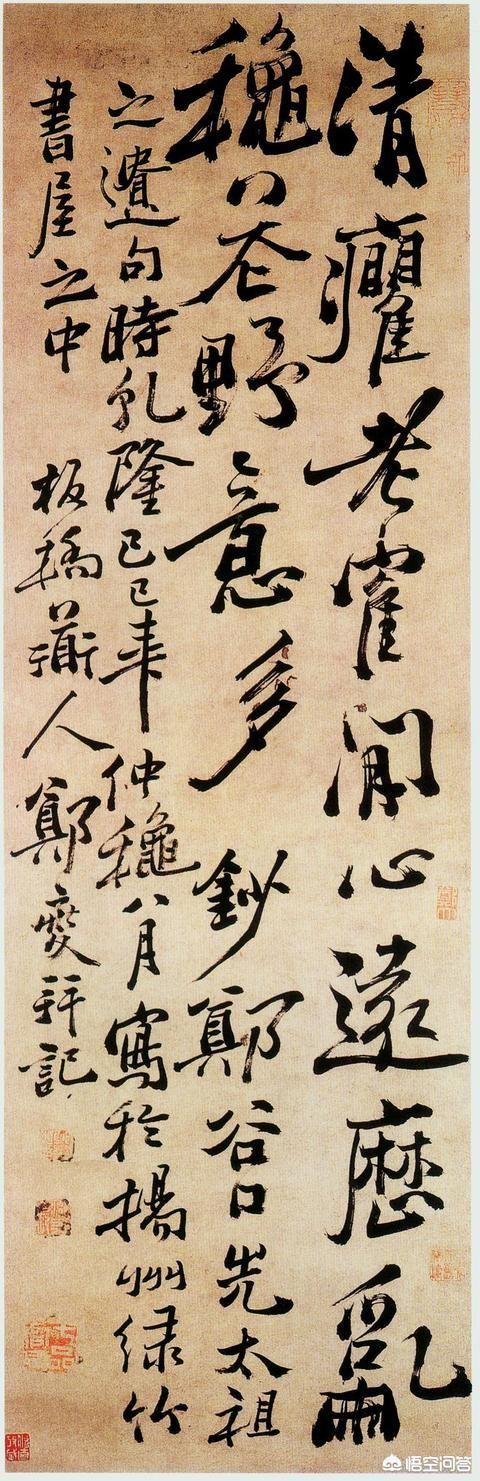 清癯老隺閒心遠歷亂
龝花野意多 鈔鄭谷口先太祖
之遺句時乹隆己巳年仲龝八月寫於揚州緑竹
書屋之中 板橋衟人鄭燮拜記
悟空问答